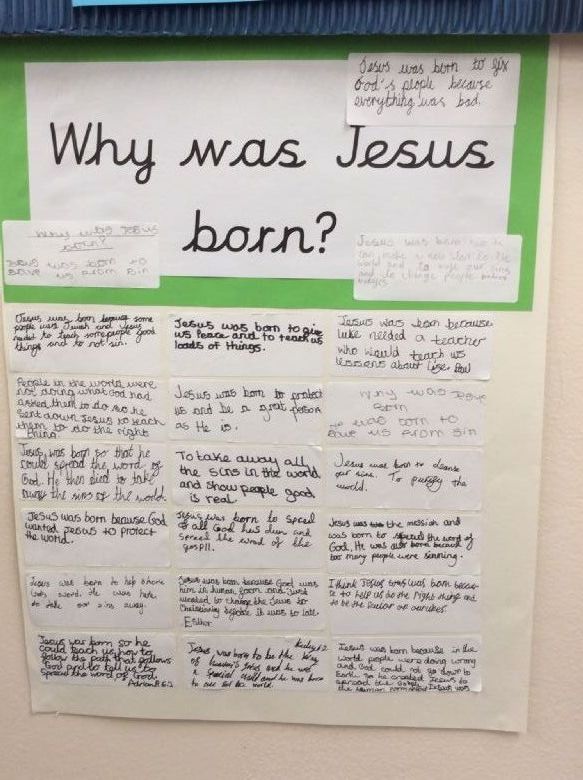 Jesus was born to fix
God's people because
everything was bad.
Why was Jesus
born?
Why was Jesus
born?
Jesus was born to
save us from sin
Jesus was born
can make a new start to the
world and to our sins
and to change people
Jesus was born because some
people was Jewish and Jesus
needed to teach some people good
things and to not sin.
Jesus was born to give
us Peace and to teach us
loads of things.
Jesus was born because
needed a teacher
who would teach us
lessions about life.
People in the world were
not doing what God had
asked them to do so he
sent down Jesus to teach
them to do the right
thing.
Jesus was born to protect
us and be a great person
as He is.
Why was Jesus
born
was born to
save us from sin
Jesus was born so that he
could spread the word of
God. He then died to take
away the sins of the world.
To take away all
the sins in the world
and show people good
is real.
Jesus was born to cleanse
our sins. To purify the
world.
Jesus was born because God
wanted Jesus to protect
the world.
Jesus was born to spred
of all God has dun and
spread the word of the
gospil.
Jesus was the messiah and
was born to spread the word of
God. He was born because of
too many people were sinning.
Jesus was born to help shore
Gods word. He was here
to take our sins away.
Jesus was born because God was
him in human form and God
wanted to change the Jews to
Christianity before it was to late.
Esther
I think Jesus was born becau-
se to help us do the right thing and
to be the of ourselves.
Jesus was born so he
could teach us how to
follow the path that follows
God and to tell us to
spread the word of God.
Adrian
Jesus was born to be the King
of and he was
a special child and he was born
to the world.
Jesus was born because in the
world people were doing wrong
and God could not go down to
Earth so he created Jesus to
spread the Gospel. Jesus is
the human Jesus was